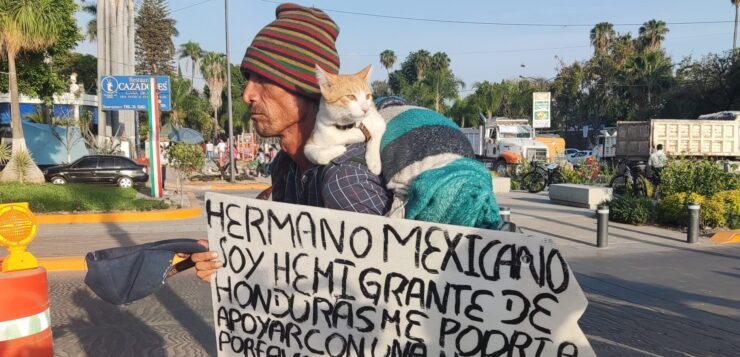 Restaurant
CAZADORES
HERMANO MEXICANO
SOY HEMIGRANTE DE
HONDURAS ME PODRIA
APOYAR CON UNA
PORFA